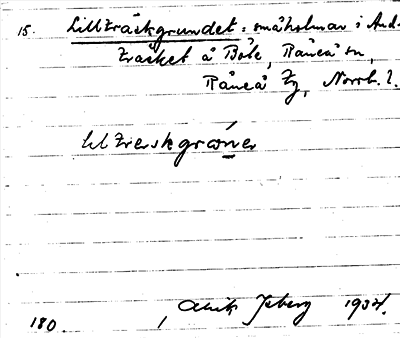 15. Lillträskgrundet: småholmar i And-
träsket å Böle, Råneå sn,
Råneå tg, Norrb. l.
liltrɛskgrɷ́nɐ
180 Isberg 1934.